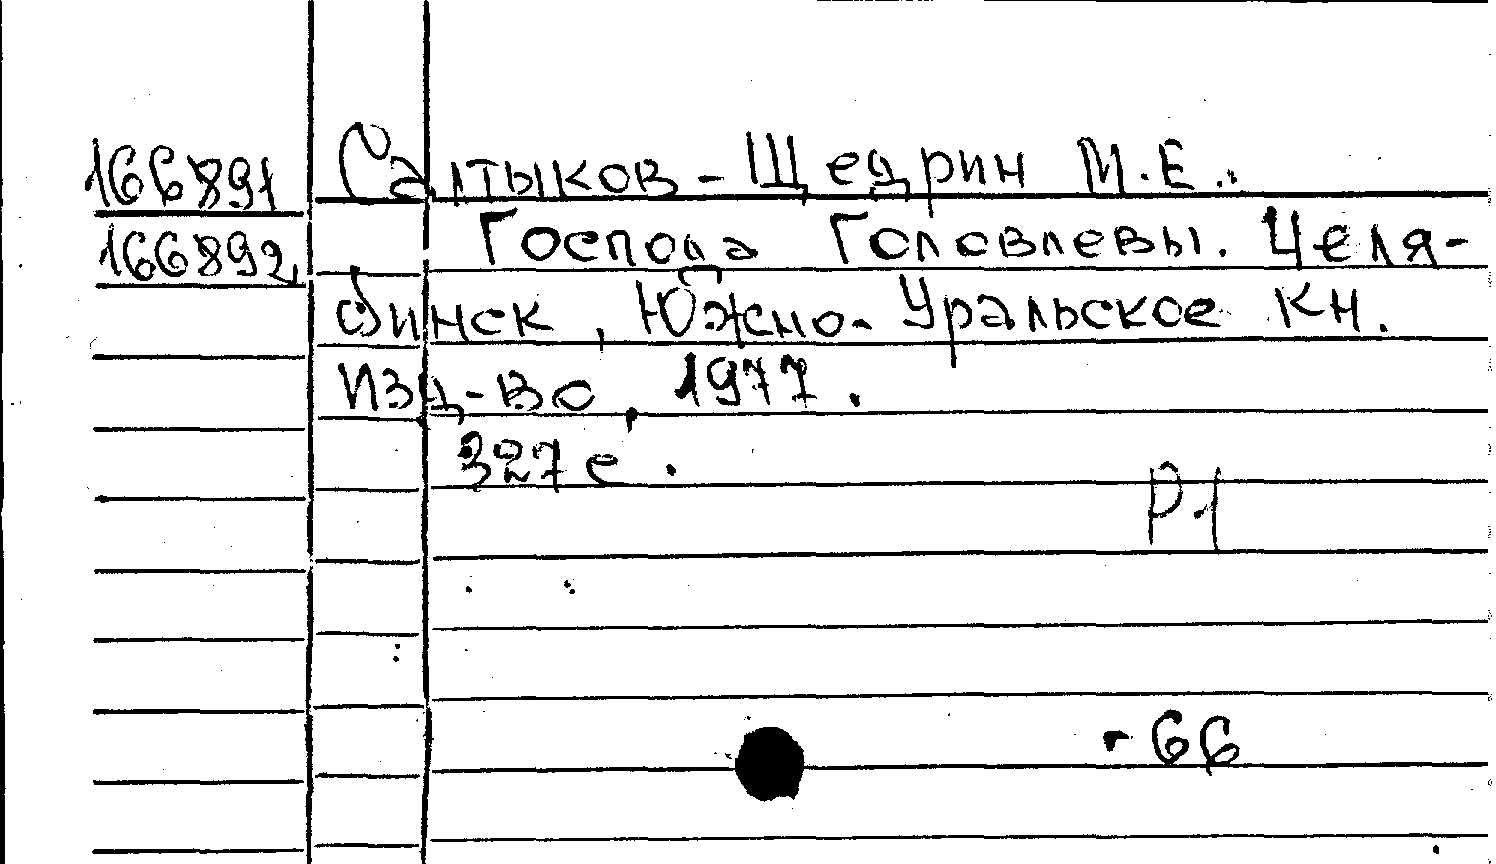 166891 Салтыков-Щедрин М.Е.
166892 Господа Головлевы. Челя-
бинск, Южно-Уральское кн.
изд-во, 1977.
327 с.
Р1
66